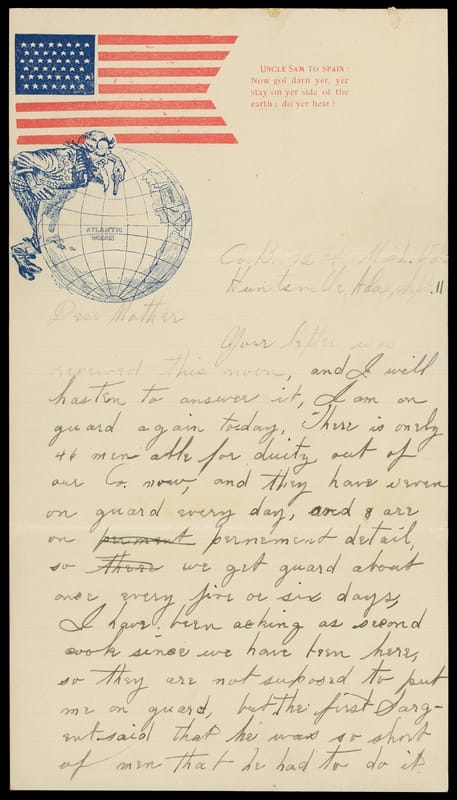 UNCLE SAM TO SPAIN:
Now gol darn yer, yer
stay on yer side of the
earth; do yer hear!
ATLANTIC
OCEAN
Co. B. 32
Huntsville, Ala, 11
Dear Mother
Your letter was
received this noon, and I will
hasten to answer it, I am on
guard again today, There is onely
46 men able for duity out of
our Co. now, and they have seven
on guard every day, and 8 are
on perment pernement detail,
so there we get guard about
once every five or six days,
I have been acking as second
cook since we have been here,
so they are not suposed to put
me on guard, but the first Sarg-
ent said that he was so short
of men that he had to do it